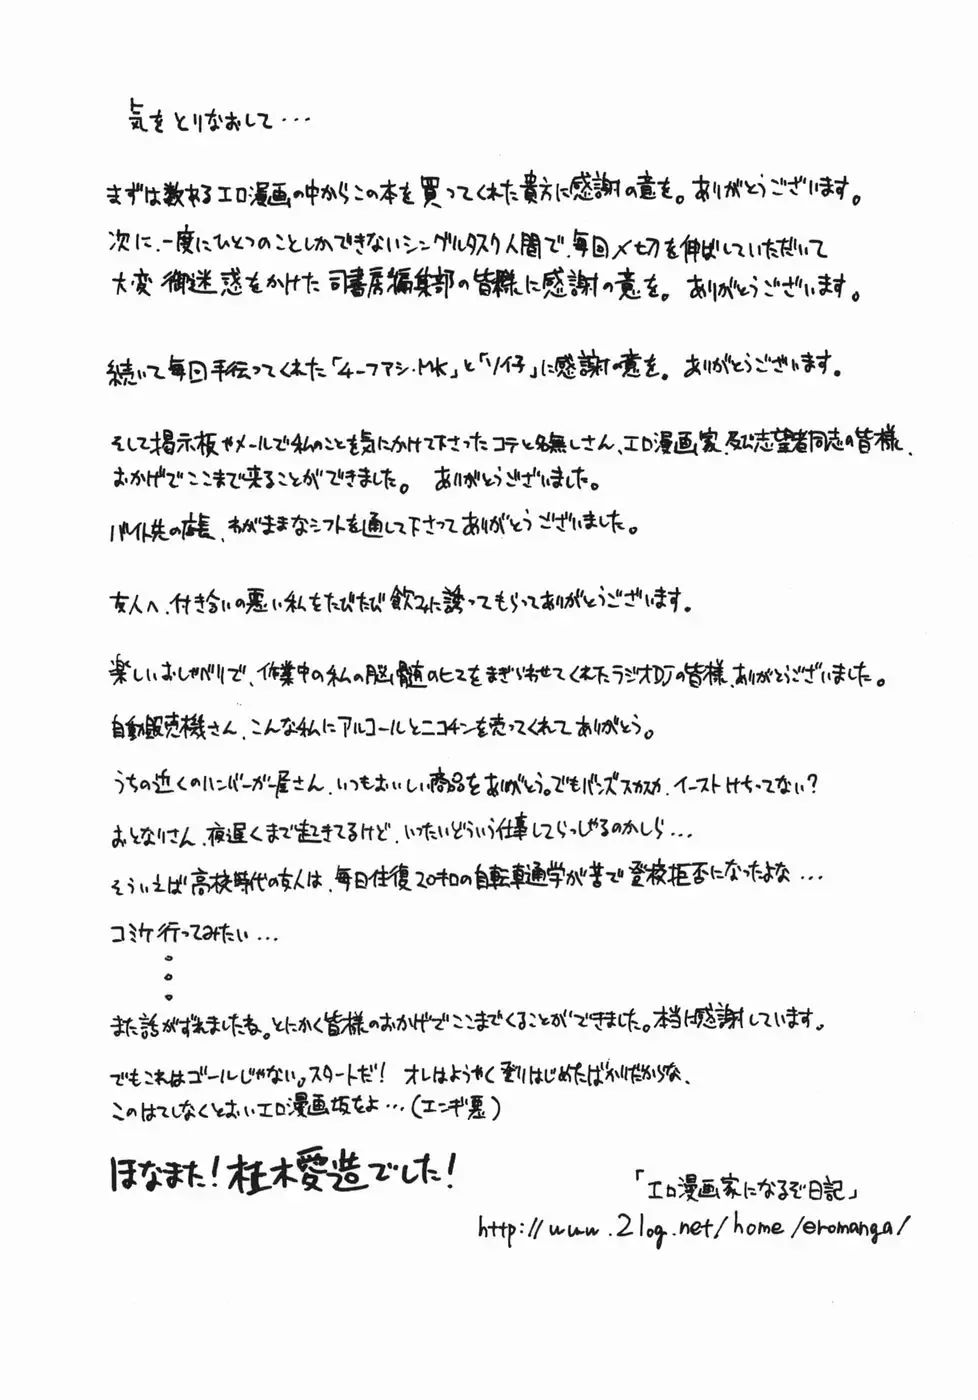 気をとりなおして・・・
まずは数あるエロ漫画の中からこの本を買ってくれた貴方に感謝の意を。ありがとうございます。
次に、一度にひとつのことしかできないシングルタスク人間で、毎回〆切を伸ばしていただいて
大変御迷惑をかけた司書房編集部の皆様に感謝の意を。ありがとうございます。
続いて毎回手伝ってくれた「4-ファシ・MK」と「ソイ子」に感謝の意を。ありがとうございます。
そして掲示板やメールで私のことを気にかけて下さったコテと名無しさん、エロ漫画家、及び志望者同志の皆様、
おかげでここまで来ることができました。ありがとうございました。
バイト先の店長、わがままなシフトを通して下さってありがとうございました。
友人へ、付き合いの悪い私をたびたび飲みに誘ってもらってありがとうございます。
楽しいおしゃべりで、作業中の私の脳髄のヒマをまぎらわせてくれたラジオDJの皆様、ありがとうございました。
自動販売機さん、こんな私にアルコールとニコチンを売ってくれてありがとう。
うちの近くのハンバーガー屋さん、いつもおいしい商品をありがとう。でもバンズスカスカ、イーストけちってない?
おとなりさん、夜遅くまで起きてるけど、いったいどういう仕事してらっしゃるのかしら・・・
そういえば高校時代の友人は、毎日往復20キロの自転車通学が苦で登校拒否になったよな・・・
コミケ行ってみたい・・・
。
。
。
また話がずれましたね。とにかく皆様のおかげでここまでくることができました。本当に感謝しています。
でもこれはゴールじゃない。スタートだ! オレはようやく登りはじめたばかりだからな、
このはてしなくとおいエロ漫画坂をよ・・・(エンギ悪)
ほなまた!桂木愛造でした!
「エロ漫画家になるぞ日記」
http://www.2log.net/home/eromanga/